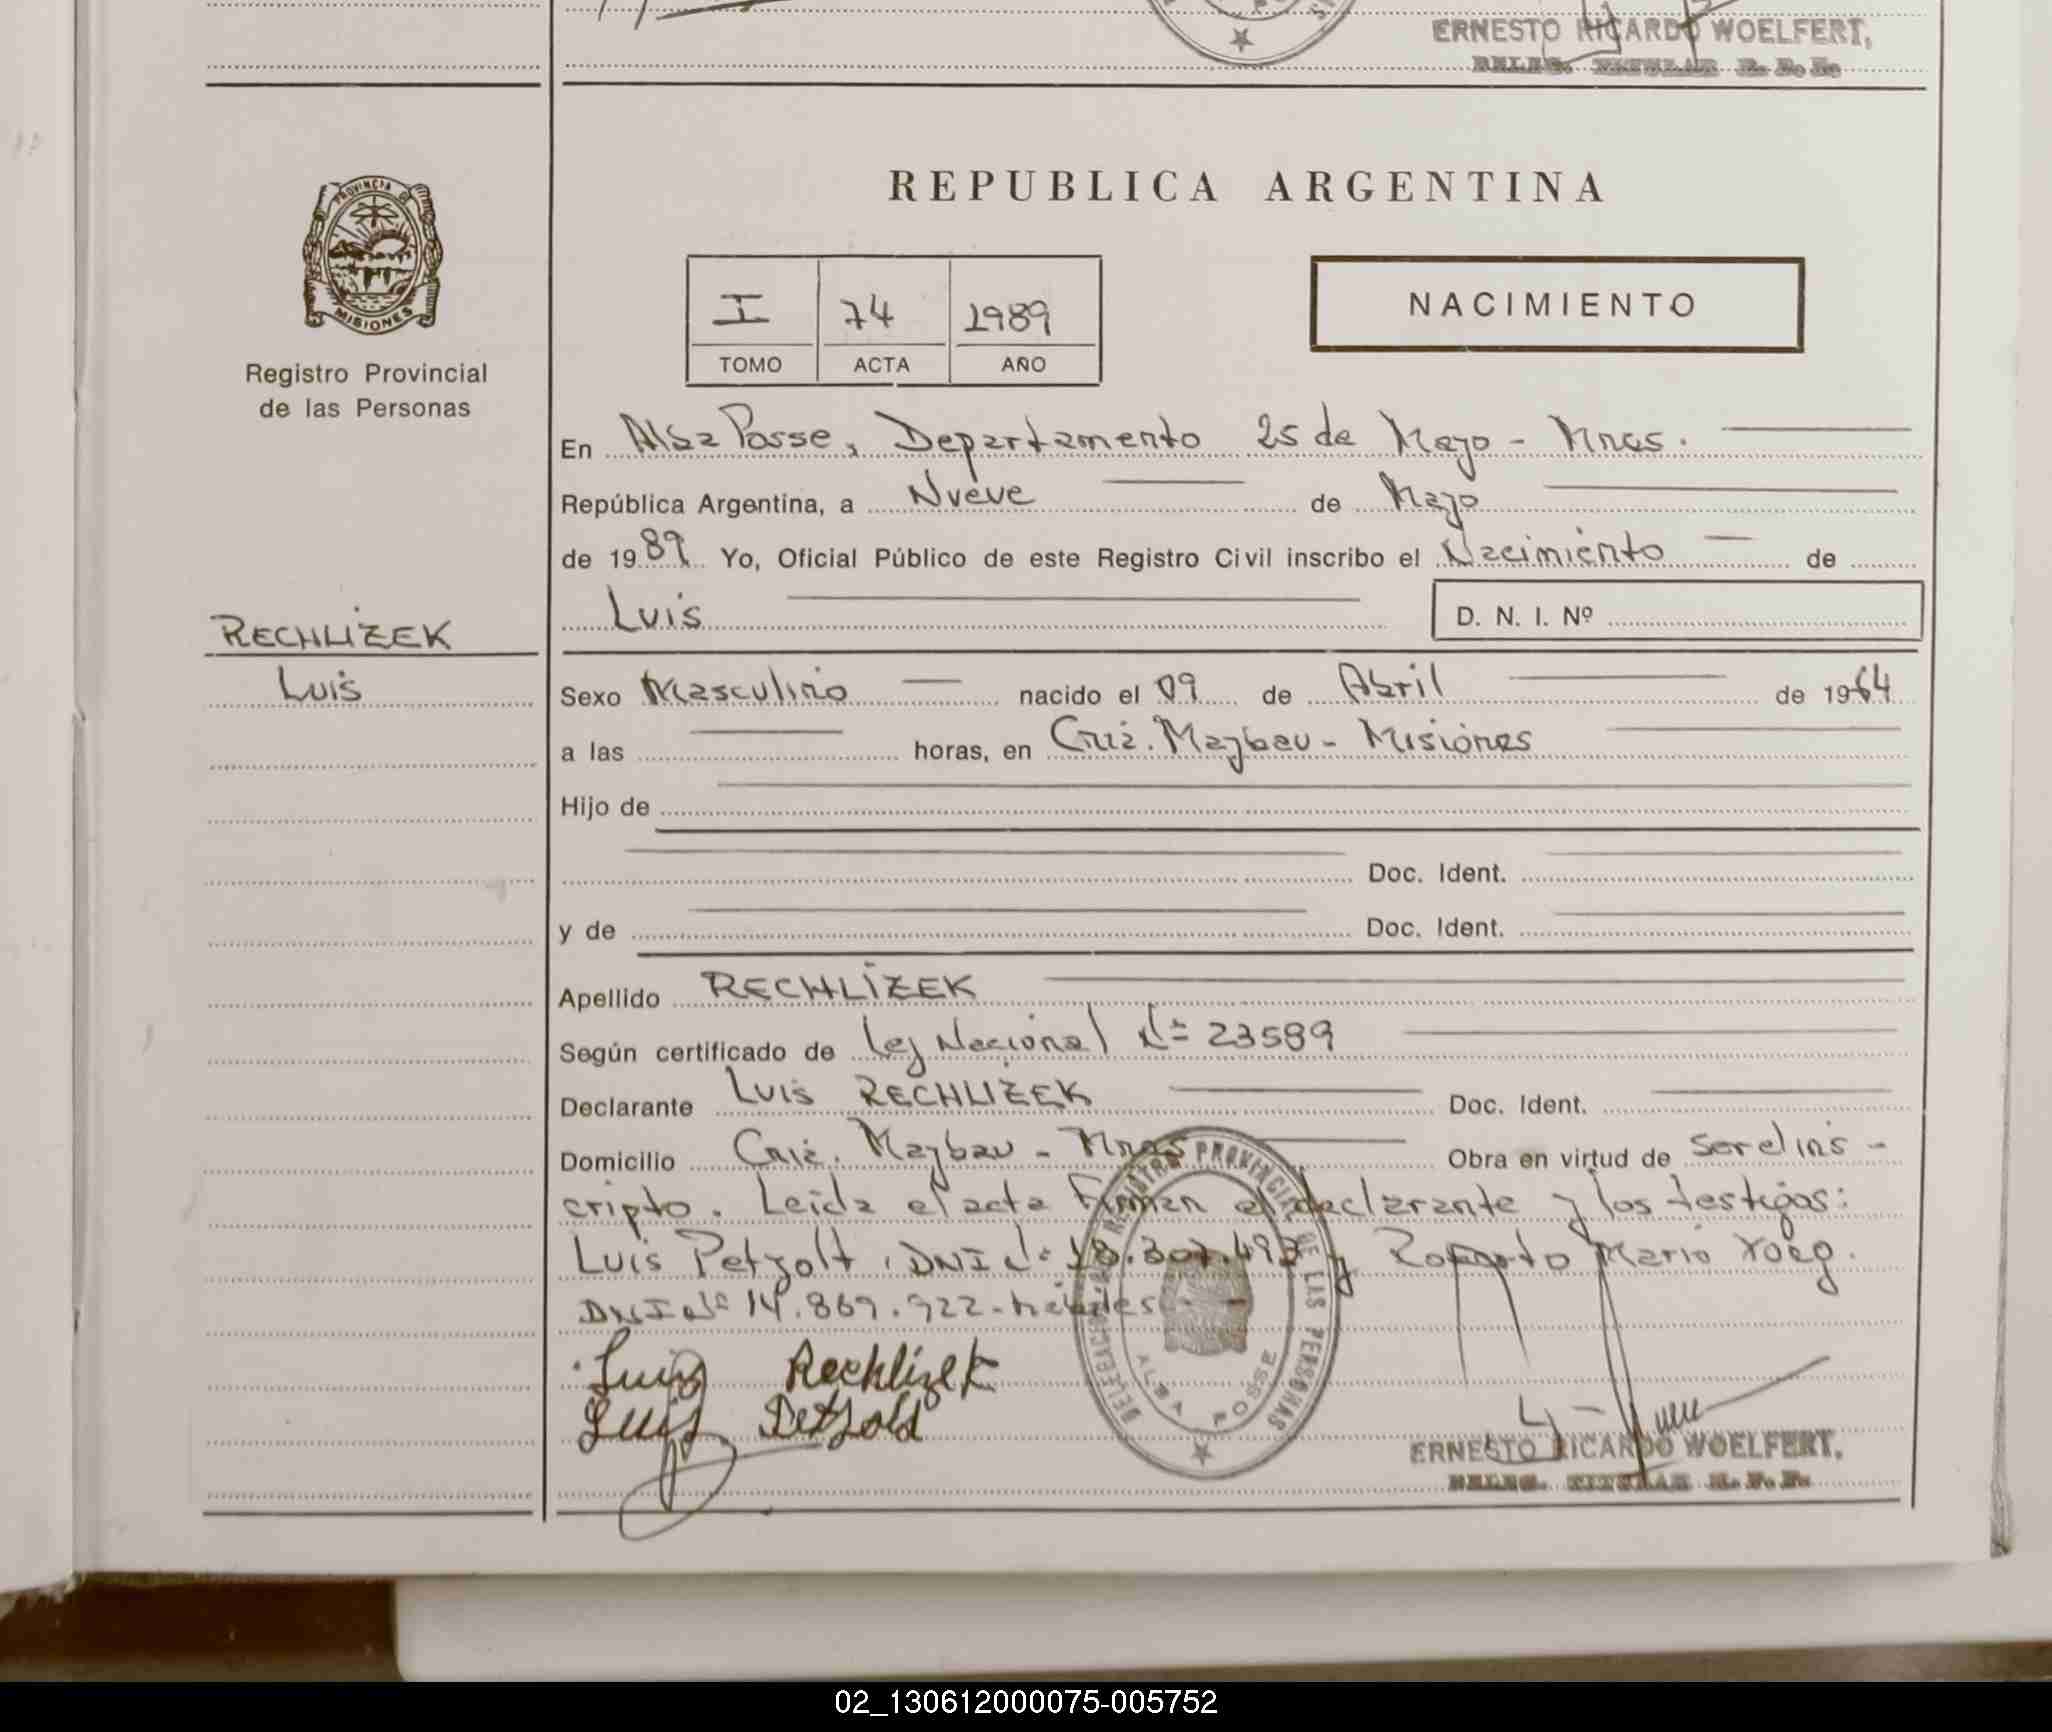 ERNESTO RICARDO WOELFERT,
DELEG. TITULAR R. P. P.
PROVINCIA
MISIONES
Registro Provincial
de las Personas
REPUBLICA ARGENTINA
I 74 1989
TOMO ACTA AÑO
NACIMIENTO
En Alba Posse, Departamento 25 de Mayo - Mnes.
República Argentina, a Nueve de Mayo
de 1989 Yo, Oficial Público de este Registro Civil inscribo el Nacimiento de
Luis D. N. I. Nº
RECHLIZEK
Luis
Sexo Masculino nacido el 09 de Abril de 1964
a las horas, en Cnia. Maybau - Misiones
Hijo de
Doc. Ident.
y de Doc. Ident.
Apellido RECHLIZEK
Según certificado de Ley Nacional Nº 23589
Declarante Luis RECHLIZEK Doc. Ident.
Domicilio Cnia. Maybau - Mnes Obra en virtud de ser el ins-
cripto. Leida el acta Firman el declarante y los testigos:
Luis Petzolt, DNI Nº y Roberto Mario
DNI Nº 14.869.922.
Luis Rechlizek
Luis Petzold
DELEGACION REGISTRO PROVINCIAL DE LAS PERSONAS
ALBA POSSE
ERNESTO RICARDO WOELFERT,
DELEG. TITULAR R. P. P.
02_130612000075-005752